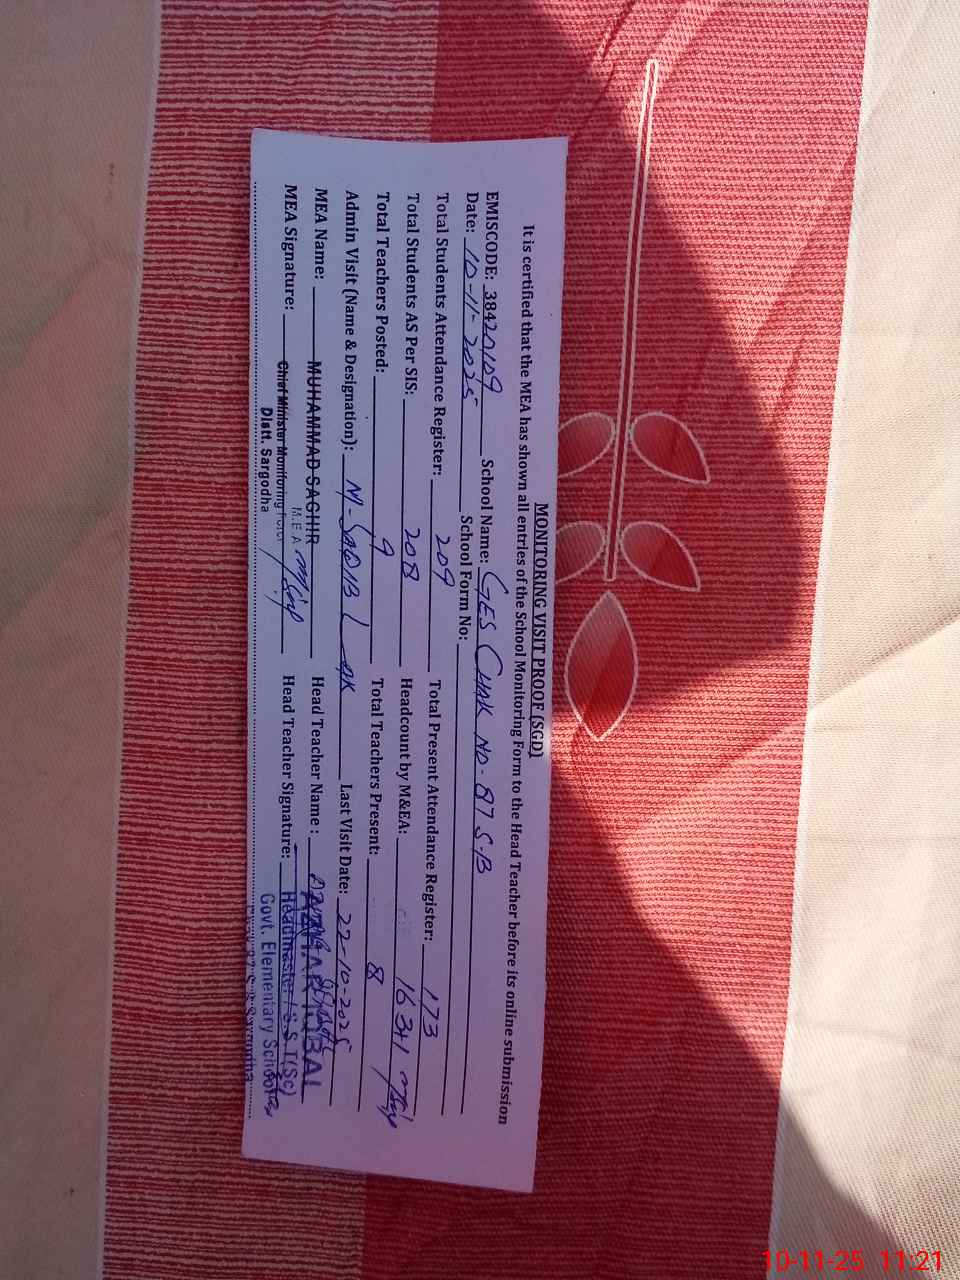 MONITORING VISIT PROOF (SGD)
It is certified that the MEA has shown all entries of the School Monitoring Form to the Head Teacher before its online submission
EMISCODE: 38420109 School Name: GES CHAK NO. 87 S.B
Date: 10-11-2025 School Form No:
Total Students Attendance Register: 209 Total Present Attendance Register: 173
Total Students AS Per SIS: 208 Headcount by M&EA:
Total Teachers Posted: 9 Total Teachers Present: 8
Admin Visit (Name & Designation): Last Visit Date: 22-10-2025
MEA Name: MUHAMMAD SAGHIR Head Teacher Name :
M.E.A
MEA Signature: Head Teacher Signature: Headmaster / S.S.T(Sc)
Chief Minister Monitoring Force
Distt. Sargodha
Govt. Elementary School
10-11-25 11:21